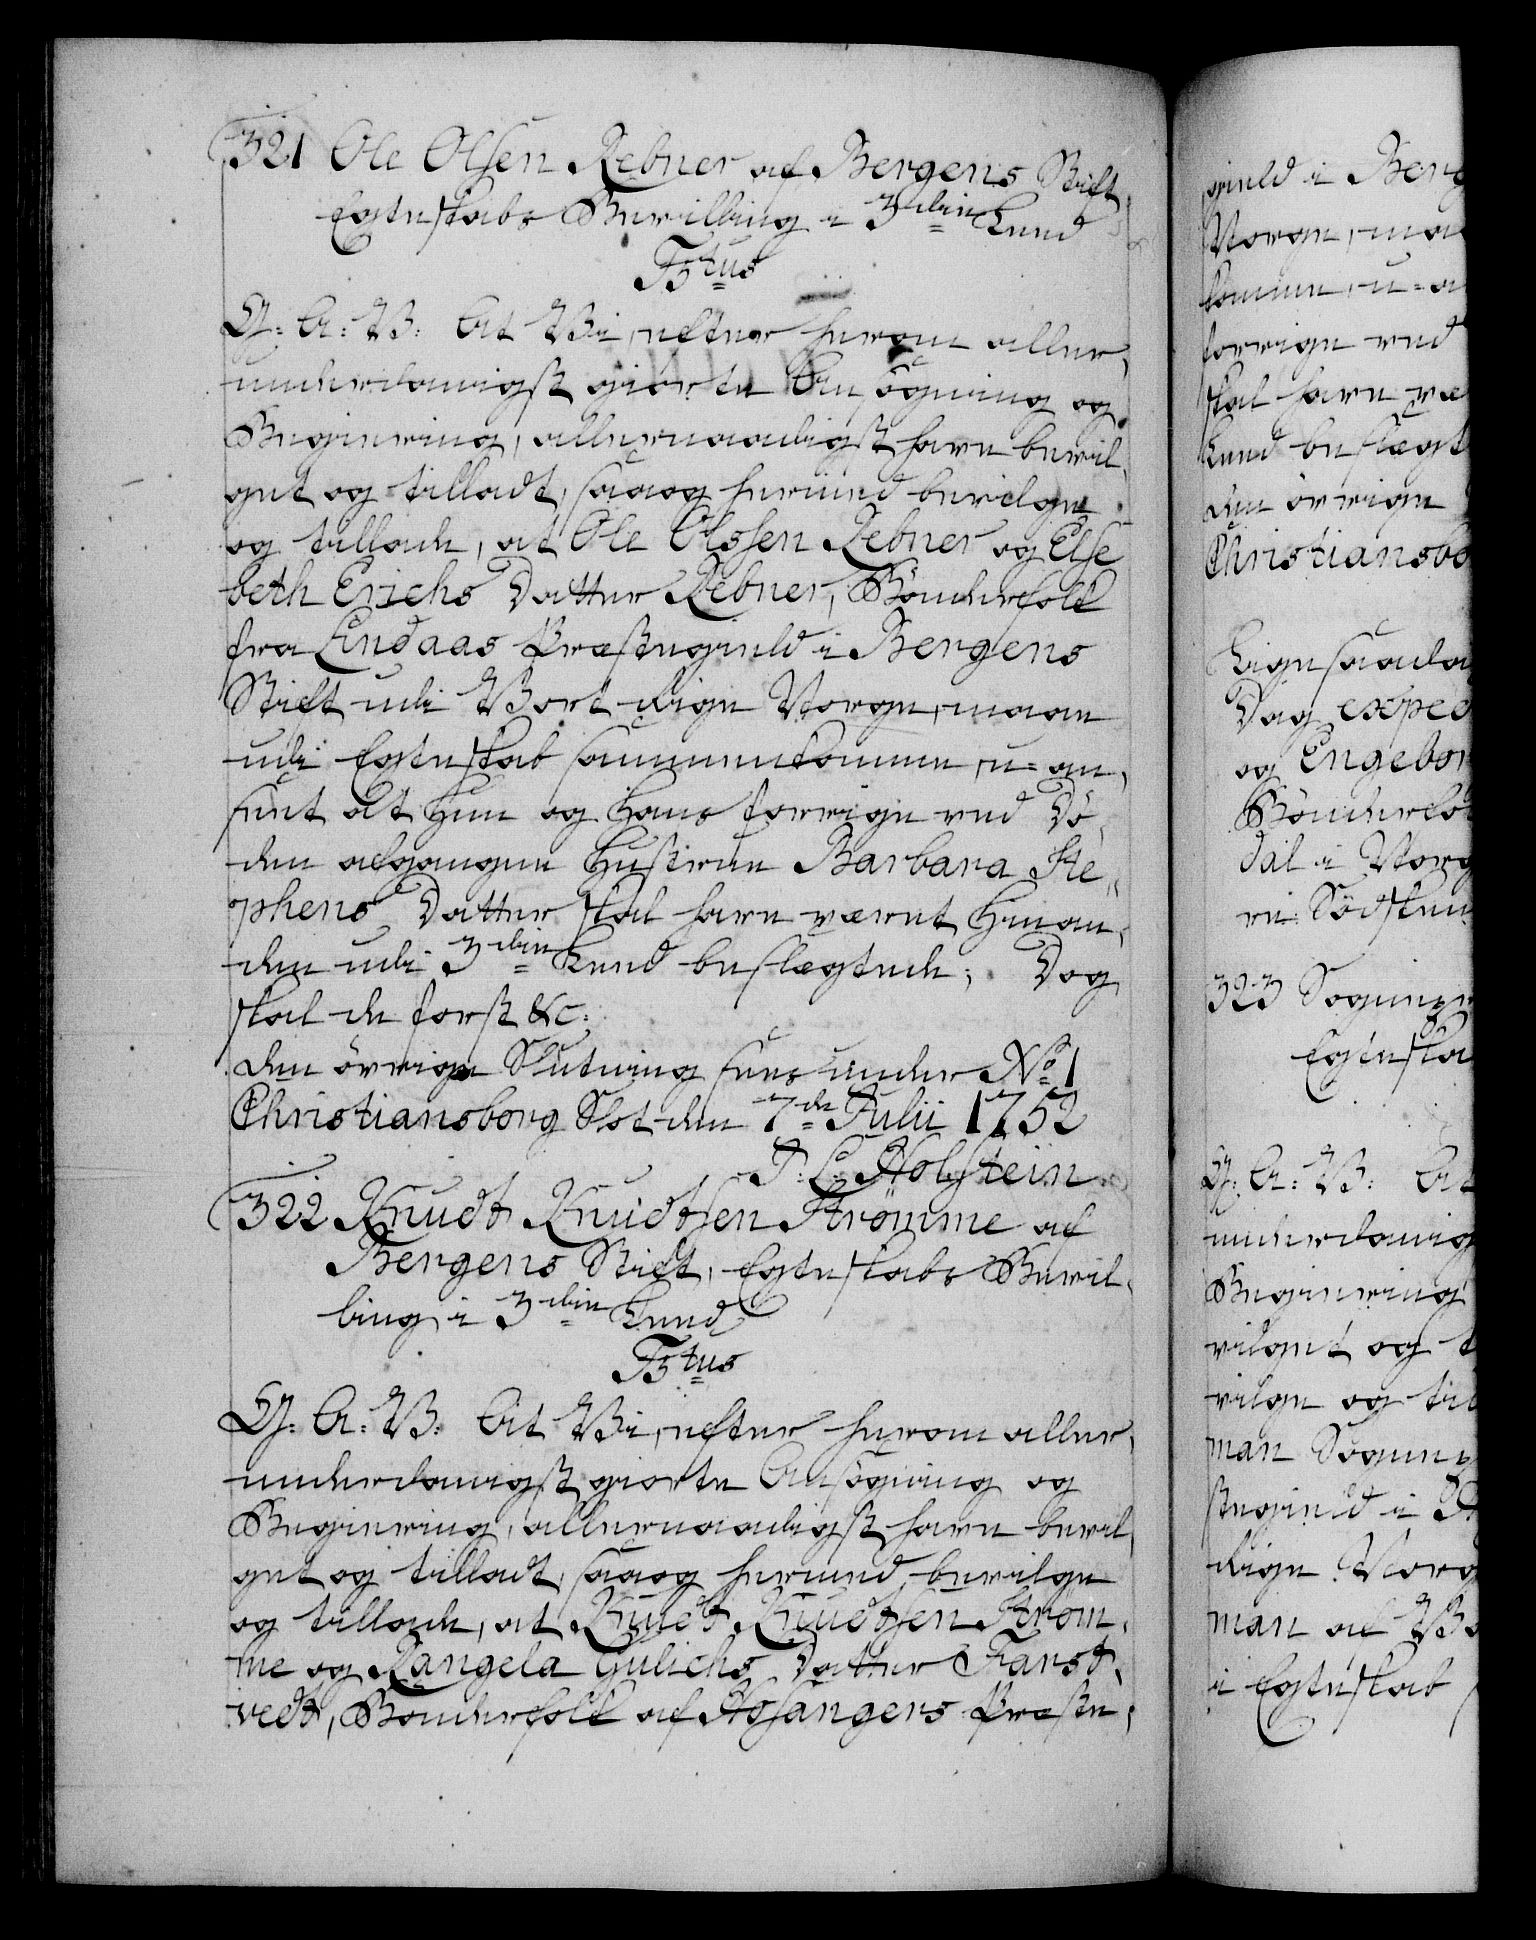 321 Ole Olsen Rebner af Bergens Stift
Egteskabs Bevilling i 3die Leed
F5tus
G: A: V: At Vi, efter herom aller,
underdanigst giorte Ansögning og
Begiering, allernaadigst have bevil,
get og tilladt, saa og hermed bevilge
og tillade, at Ole Olssen Rebner og Else
beth Erichs Datter Rebner, Bönderfolk
fra Lindaas Præstegield i Bergens
Stift udi Vort Rige Norge, maae
udi Egteskab sammenkomme, u-an,
seet at Hun og Hans forrige ved Dö,
den afgangne Hustrue Barbara Ste,,
phens Datter skal have været hinan,
den udi 3die Leed beslægtede; Dog
skal de först &c:
den övrige Slutning sees under No 1
Christiansborg Slot den 7de Julii 1752
J: L: Holstein
322 Knudt Knudtsen Strömme af
Bergens Stift, Egteskabs Bevil,
ling i 3die Leed
F5tus
G: A: V: At Vi, efter herom aller,
underdanigst giorte Ansögning og
Begiering, allernaadigst have bevil,
get og tilladt, saa og hermed bevilge
og tillade, at Knudt Knudtsen Ström,
me og Rangela Gulichs Datter Farst,
vedt, Bönderfolk af Hosangers Præste,
gield i Berg
Norge, maa
komme, u-a
forrige ved
skal have væ
Leed beslægt
den övrige
Christiansbo
Ligesaada
Dag exped
og Engebor
Bönderfol
dal i Norg
re: Södsken
323
Egteska
G: A: V: At
underdanig
Begiering
vilget og t
vilge og til
man
stegield i
Rige Norg
man af
i Egteskab